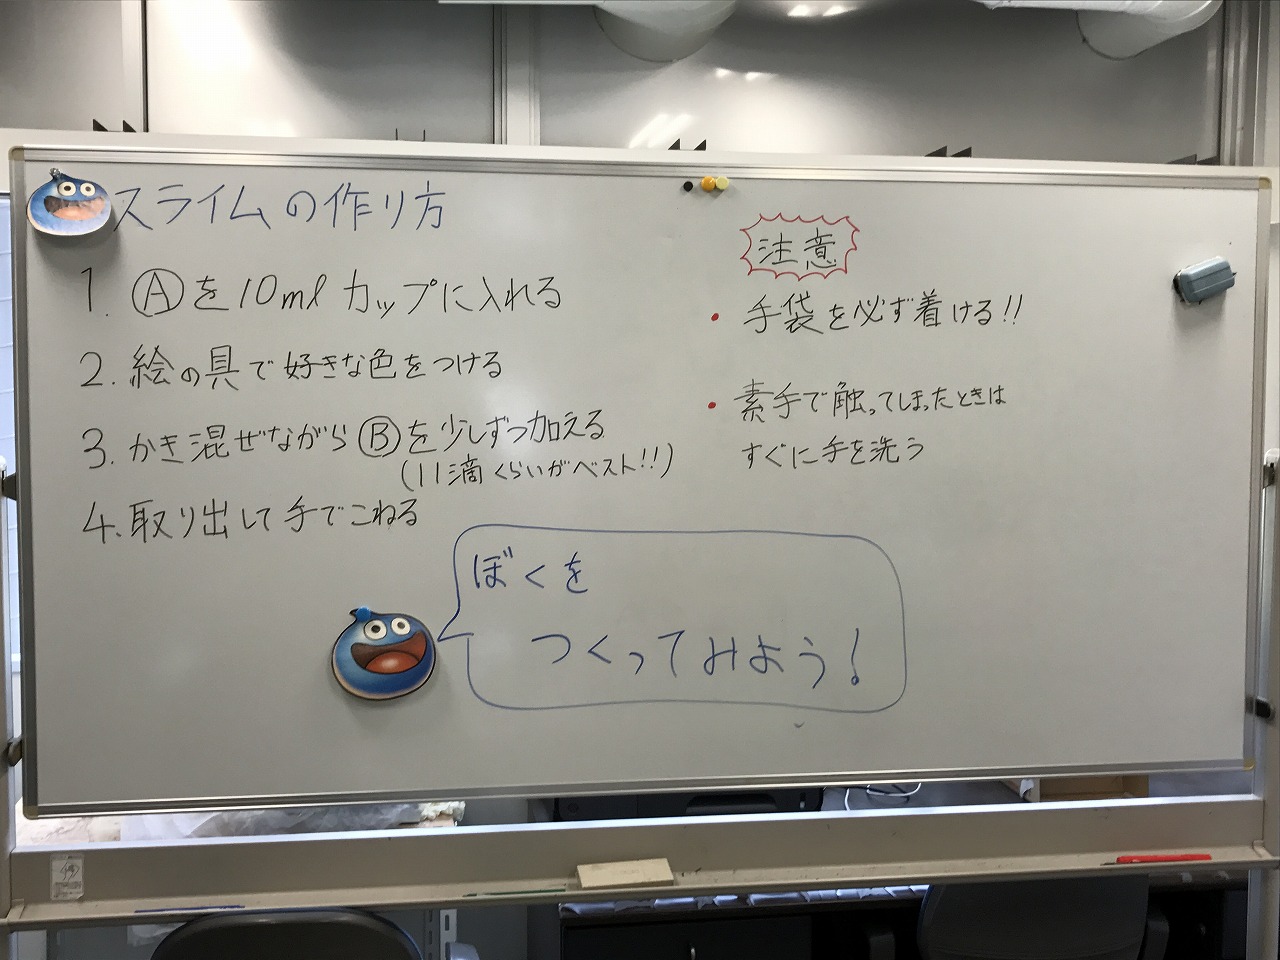 スライムの作り方
1. Ⓐを10mlカップに入れる
2. 絵の具で好きな色をつける
3. かき混ぜながらⒷを少しずつ加える
(11滴くらいがベスト!!)
4. 取り出して手でこねる
ぼくを
つくってみよう!
注意
・手袋を必ず着ける!!
・素手で触ってしまったときは
すぐに手を洗う